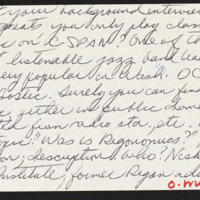 your background interview
great, you only play clas
ic on C-SPAN? One of th
t listenable jazz band lea
very popular in Wash. DC
Surely you can fin
either in public domai
radio sta., etc.
"Was is Reganomics?"
on; description who? Nisk
Institute, former Regan ad